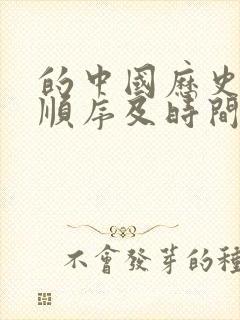 的中國歷史
順序及時間
不會發芽的種